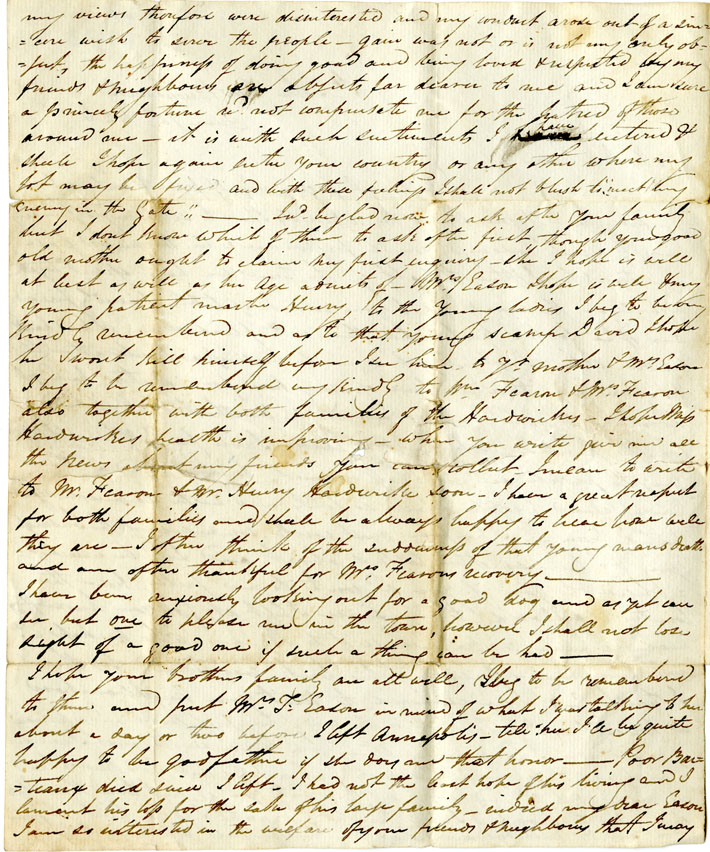 my views therefore were disinterested and my conduct arose out of a sin=
=cere wish to serve the people – gain was not or is not my only ob=
=ject, the happiness of doing good and being loved & respected by my
friends & neighbours are objects far dearer to me and I am sure
a princely fortune wd. not compensate me for the hatred of those
around me – it is with such sentiments I have entered &
shall I hope again enter your country or any other where my
lot may be and with these feelings I shall not blush to meet my
enemy in the Gate !! — I wd. be glad now to ask after your family
but I dont know which of them to ask after first, though your good
old mother ought to claim my first enquiry – she I hope is well
at least as well as her age admits of – Mrs. Eason I hope is well & my
young patient master Henry, to the young ladies I beg to be very
kindly remembered and as to that young scamp David I hope
he wont kill himself before I see him. to yr. mother & Mrs Eason
I beg to be remembered very kindly to Mr. Fearon & Mrs. Fearon
also together with both families of the Hardwickes – I hope Miss
Hardwickes health is improving – when you write give me all
the news about my friends you can collect, I mean to write
to Mr. Fearon & Mr. Henry Hardwicke soon – I have a great respect
for both families and shall be always happy to hear how well
they are – I often think of the suddenness of that young mans death
and am often thankful for Mrs. Fearons recovery. —
I have been anxiously looking out for a good dog and as yet can
see but one to please me in the town, however I shall not lose
sight of a good one if such a thing can be had —
I hope your brothers family are all well, I beg to be remembered
to them and put Mrs. T. Eason in mind of what I was talking to her
about a day or two before I left Annapolis – tell her I'll be quite
happy to be godfather if she does me that honor — Poor Bar=
=teaux died since I left – I had not the least hope of his living and I
lament his loss for the sake of his large family – indeed my dear Eason
I am so interested in the welfare of your friends & neighbours that I may